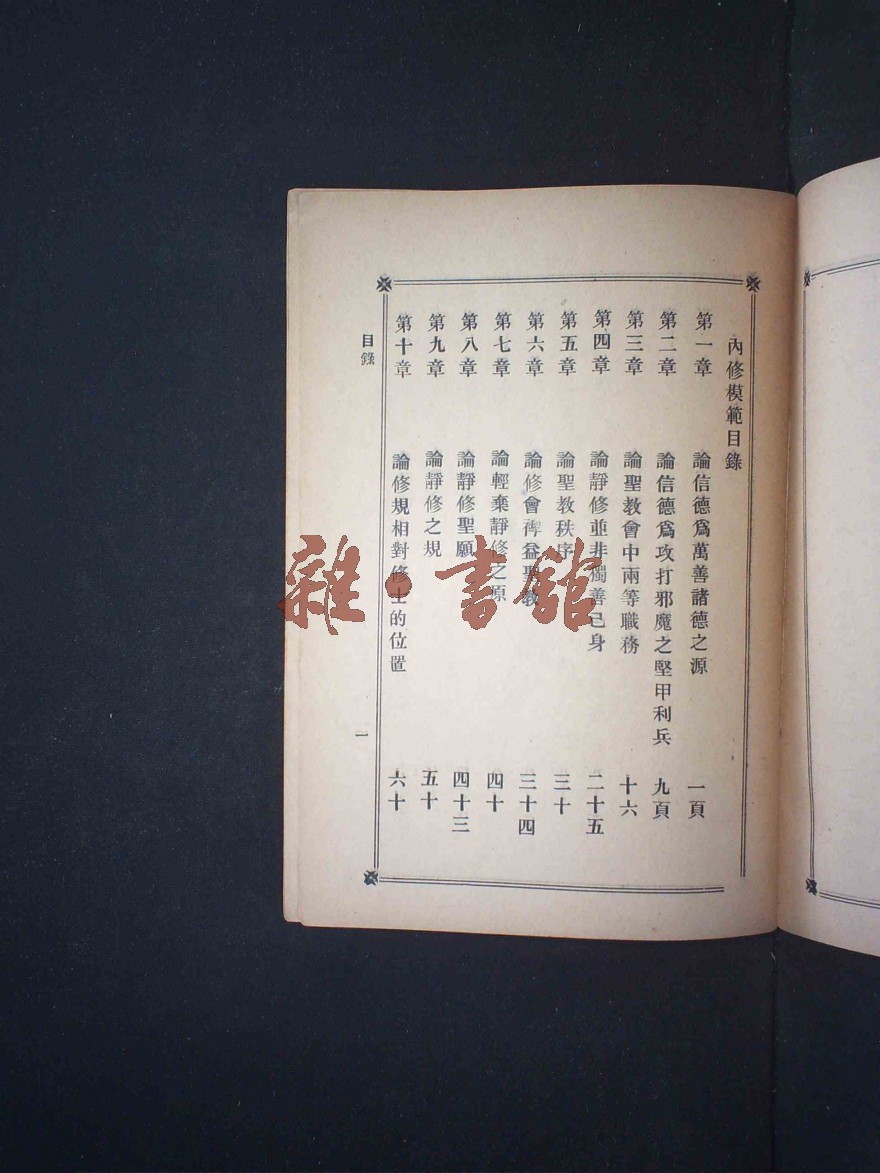 內修模範目錄
第一章 論信德爲萬善諸德之源 一頁
第二章 論信德爲攻打邪魔之堅甲利兵 九頁
第三章 論聖教會中兩等職務 十六
第四章 論靜修並非獨善己身 二十五
第五章 論聖教秩序 三十
第六章 論修會裨益聖教 三十四
第七章 論輕棄靜修之原 四十
第八章 論靜修聖願 四十三
第九章 論靜修之規 五十
第十章 論修規相對修士的位置 六十
目錄 一
雜·書館